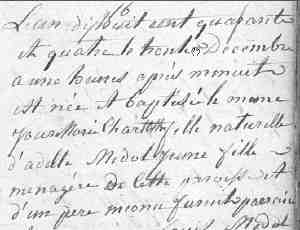 L'an dix huit cent quarante
et quatre le trente Decembre
a une heure après minuit
est née et baptisé le meme
jour Marie Charlotte fille naturelle
d'adelle Medot jeune fille
menagère de cette paroisse et
d'un pere inconu furent parrain
Medot